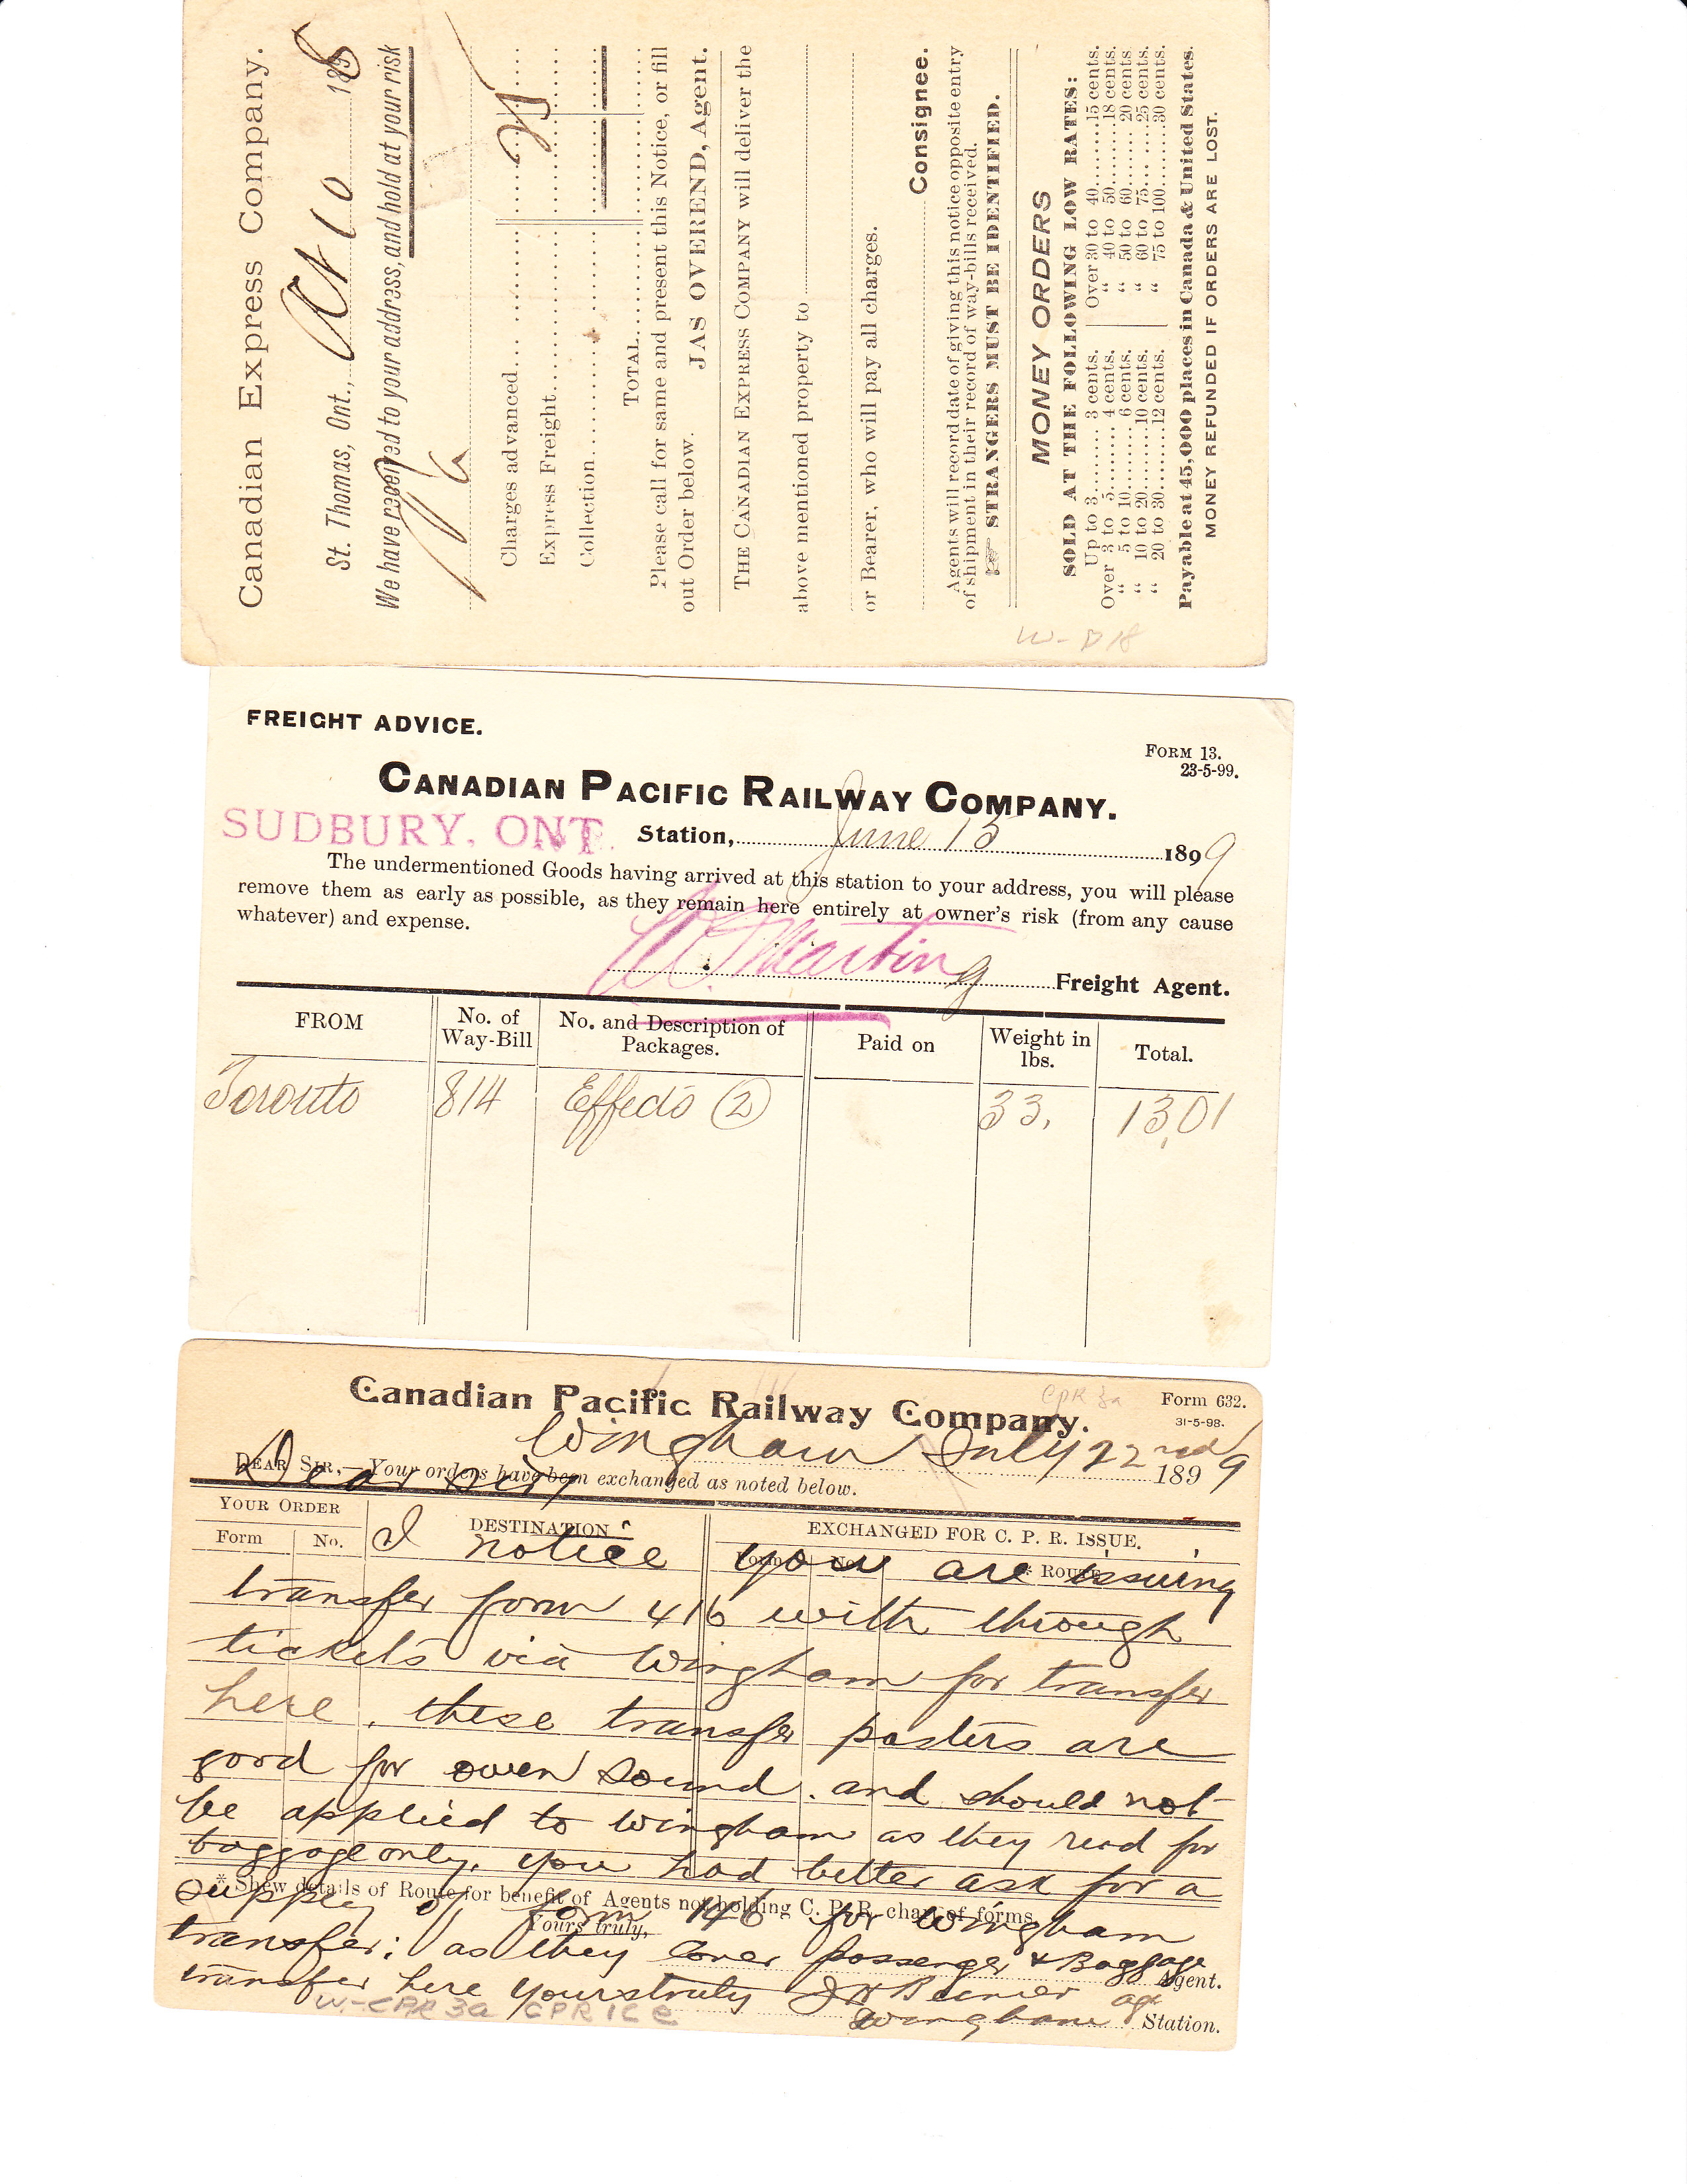 Canadian Express Company.
St. Thomas, Ont., 1898
We have received to your address, and hold at your risk
Charges advanced
Express Freight 25
Collection
TOTAL
Please call for same and present this Notice, or fill
out Order below. JAS OVEREND, Agent.
THE CANADIAN EXPRESS COMPANY will deliver the
above mentioned property to
or Bearer, who will pay all charges.
Consignee.
Agents will record date of giving this notice opposite entry
of shipment in their record of way-bills received.
STRANGERS MUST BE IDENTIFIED.
MONEY ORDERS
SOLD AT THE FOLLOWING LOW RATES:
Up to 3 3 cents. Over 30 to 40 15 cents.
Over 3 to 5 4 cents. “ 40 to 50 18 cents.
“ 5 to 10 6 cents. “ 50 to 60 20 cents
“ 10 to 20 10 cents. “ 60 to 75 25 cents
“ 20 to 30 12 cents. “ 75 to 100 30 cents.
Payable at 45,000 places in Canada & United States.
MONEY REFUNDED IF ORDERS ARE LOST.
W-D18
FREIGHT ADVICE.
FORM 13.
23-5-99.
CANADIAN PACIFIC RAILWAY COMPANY.
SUDBURY, ONT. Station, June 13 1899
The undermentioned Goods having arrived at this station to your address, you will please
remove them as early as possible, as they remain here entirely at owner's risk (from any cause
whatever) and expense.
Martin Freight Agent.
FROM No. of Way-Bill No. and Description of Packages. Paid on Weight in lbs. Total.
Toronto 814 Effects (2) 33, 13,01
Canadian Pacific Railway Company.
CPR 3a
Form 632.
31-5-98.
Wingham July 22nd 1899
DEAR SIR,—Your orders have been exchanged as noted below.
Dear Sir
YOUR ORDER DESTINATION EXCHANGED FOR C. P. R. ISSUE.
Form No. Form No. * ROUTE
I notice you are issuing
transfer form 416 with through
tickets via Wingham for transfer
here. these transfer pasters are
good for owen Sound. and should not
be applied to Wingham as they read for
baggage only. you had better ask for a
* Shew details of Route for benefit of Agents not holding C. P. R. chart of forms.
supply of form 146 for Wingham
Yours truly,
transfer; as they cover passenger & Baggage
Agent.
transfer here yours truly
agt
Wingham Station.
W-CPR 3a CPR 1Ce